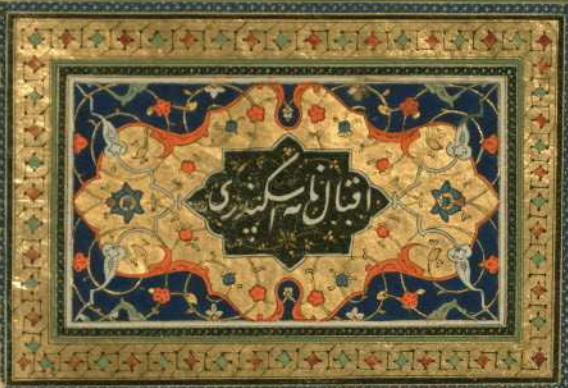 اقبال نامه سکندری